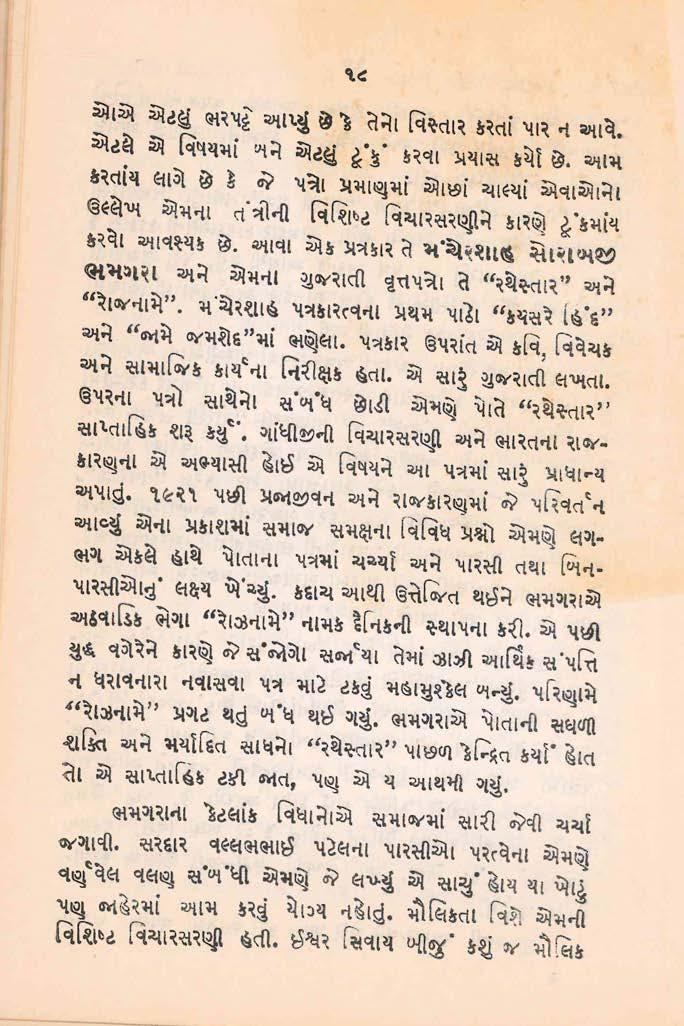 ૧૮
ઓએ એટલું ભરપટ્ટે આપ્યું છે કે તેનો વિસ્તાર કરતાં પાર ન આવે.
એટલે એ વિષયમાં બને એટલું ટૂંકું કરવા પ્રયાસ કર્યો છે. આમ
કરતાંય લાગે છે કે જે પત્રો પ્રમાણમાં ઓછાં ચાલ્યાં એવાઓનો
ઉલ્લેખ એમના તંત્રીની વિશિષ્ટ વિચારસરણીને કારણે ટૂંકમાંય
કરવો આવશ્યક છે. આવા એક પ્રત્રકાર તે મંચેરશાહ સોરાબજી
ભમગરા અને એમના ગુજરાતી વૃત્તપત્રો તે “રથેસ્તાર” અને
“રોજનામે”. મંચેરશાહ પત્રકારત્વના પ્રથમ પાઠો “કયસરે હિંદ”
અને “જામે જમશેદ”માં ભણેલા. પત્રકાર ઉપરાંત એ કવિ, વિવેચક
અને સામાજિક કાર્યના નિરીક્ષક હતા. એ સારું ગુજરાતી લખતા.
ઉપરના પત્રો સાથેનો સંબંધ છોડી એમણે પોતે “રથેસ્તાર”
સાપ્તાહિક શરૂ કર્યું. ગાંધીજીની વિચારસરણી અને ભારતના રાજ-
કારણના એ અભ્યાસી હોઈ એ વિષયને આ પત્રમાં સારું પ્રાધાન્ય
અપાતું. ૧૯૨૧ પછી પ્રજાજીવન અને રાજકારણમાં જે પરિવર્તન
આવ્યું એના પ્રકાશમાં સમાજ સમક્ષના વિવિધ પ્રશ્નો એમણે લગ-
ભગ એકલે હાથે પોતાના પત્રમાં ચર્ચ્યા અને પારસી તથા બિન-
પારસીઓનું લક્ષ્ય ખેંચ્યું. કદાચ આથી ઉત્તેજિત થઈને ભમગરાએ
અઠવાડિક ભેગા “રોઝનામે” નામક દૈનિકની સ્થાપના કરી. એ પછી
યુદ્ધ વગેરેને કારણે જે સંજોગો સર્જાયા તેમાં ઝાઝી આર્થિક સંપત્તિ
ન ધરાવનારા નવાસવા પત્ર માટે ટકવું મહામુશ્કેલ બન્યું. પરિણામે
“રોઝનામે” પ્રગટ થતું બંધ થઈ ગયું. ભમગરાએ પોતાની સઘળી
શક્તિ અને મર્યાદિત સાધનો “રથેસ્તાર” પાછળ કેન્દ્રિત કર્યાં હોત
તો એ સાપ્તાહિક ટકી જાત, પણ એ ય આથમી ગયું.
ભમગરાના કેટલાંક વિધાનોએ સમાજમાં સારી જેવી ચર્ચા
જગાવી. સરદાર વલ્લભભાઈ પટેલના પારસીઓ પરત્વેના એમણે
વર્ણવેલ વલણ સંબંધી એમણે જે લખ્યું એ સાચું હોય યા ખોટું
પણ જાહેરમાં આમ કરવું યોગ્ય નહોતું. મૌલિકતા વિશે એમની
વિશિષ્ટ વિચારસરણી હતી. ઈશ્વર સિવાય બીજું કશું જ મૌલિક